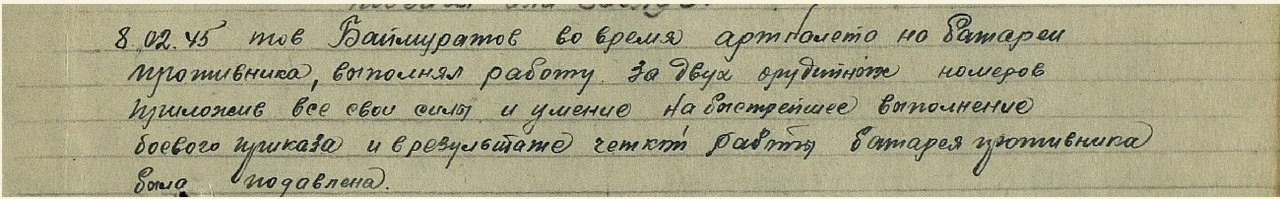 8.02.45 тов Баймуратов во время артналета на батареи
противника, выполнял работу за двух орудийных номеров
приложив все свои силы и умение на быстрейшее выполнение
боевого приказа и в результате четкой работы батарея противника
была подавлена.